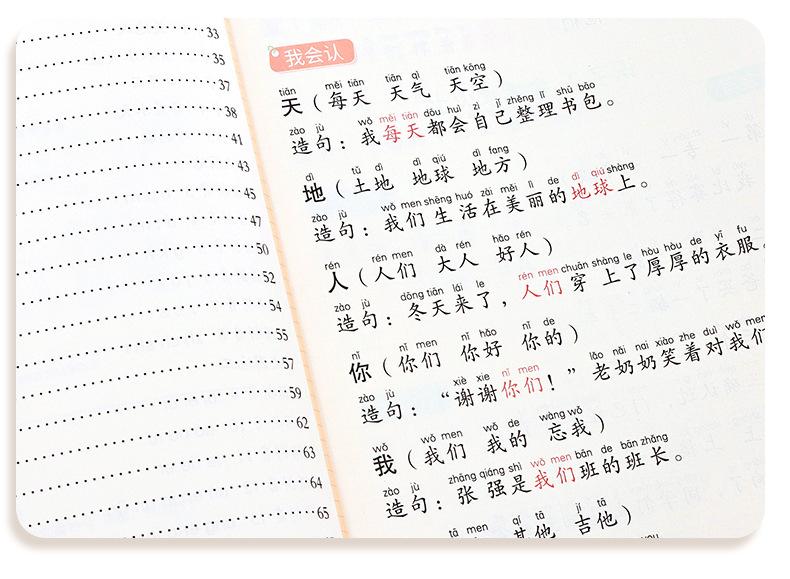 33
35
37
38
41
43
45
47
50
52
54
55
57
59
62
63
64
65
我会认
tiān měi tiān tiān qì tiān kōng
天（每天 天气 天空）
zào jù wǒ měi tiān dōu huì zì jǐ zhěng lǐ shū bāo
造句：我每天都会自己整理书包。
dì tǔ dì dì qiú dì fang
地（土地 地球 地方）
zào jù wǒ men shēng huó zài měi lì de dì qiú shàng
造句：我们生活在美丽的地球上。
rén rén men dà rén hǎo rén
人（人们 大人 好人）
zào jù dōng tiān lái le rén men chuān shàng le hòu hòu de yī fu
造句：冬天来了，人们穿上了厚厚的衣服。
nǐ nǐ men nǐ hǎo nǐ de
你（你们 你好 你的）
zào jù xiè xie nǐ men lǎo nǎi nai xiào zhe duì wǒ men
造句：“谢谢你们！”老奶奶笑着对我们
wǒ wǒ men wǒ de wàng wǒ
我（我们 我的 忘我）
zào jù zhāng qiáng shì wǒ men bān de bān zhǎng
造句：张强是我们班的班长。
tā men qí tā jí tā
其他 吉他）